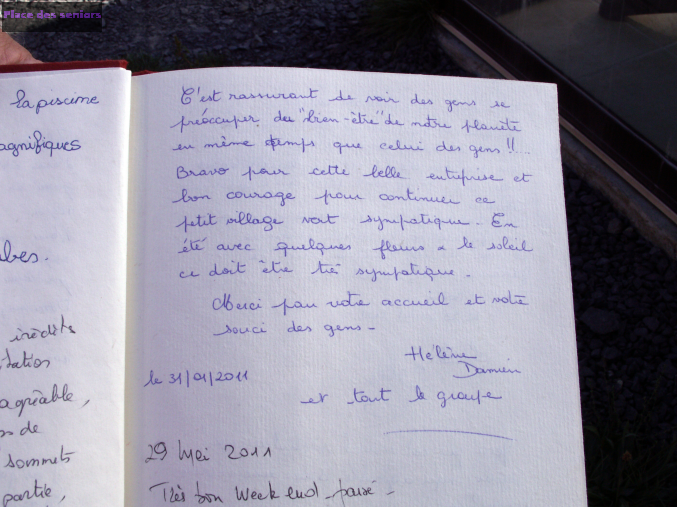 Place des seniors
la piscine
agnifiques
bes.
inédits
tation
agréable,
s de
sommets
partie,
C'est rassurant de voir des gens se
préoccuper du "bien-être" de notre planète
en même temps que celui des gens !!...
Bravo pour cette belle entreprise et
bon courage pour continuer ce
petit village vert sympatique. En
été avec quelques fleurs & le soleil
ce doit être très sympatique.
Merci pour votre accueil et votre
souci des gens -
Hélène
Damien
le 31/01/2011
et tout le groupe
29 Mai 2011
Très bon Week end passé -